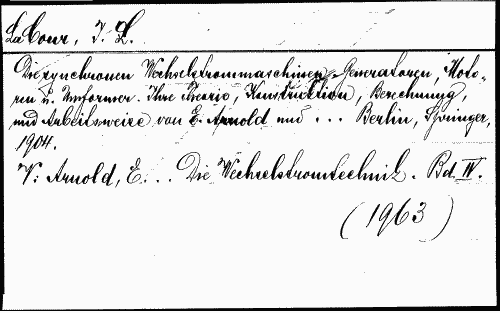 La Cour, J. L.
Die synchronen Wechselstrommaschinen, Generatoren, Moto-
ren u. Umformer. Ihre Theorie, Konstruktion, Berechnung,
und Arbeitsweise von E. Arnold und ... Berlin, Springer,
1904.
V: Arnold, E. .. Die Wechselstromtechnik. Bd. IV.
(1963)